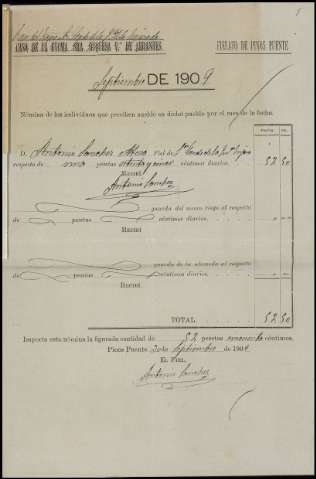 CASA DE LA EXCMA. SRA. DUQUESA V.ª DE ABRANTES.
ESTADO DE PINOS PUENTE.
Septiembre DE 1909
Nómina de los individuos que perciben sueldo en dicho pueblo por el mes de la fecha.
D. Antonio Sanchez
respecto de una pesetas céntimos diarios. 52 50
Recibí
Antonio Sanchez
guarda del mismo riego al respecto
de pesetas céntimos diarios.
Recibí
guarda de la alameda al respecto
de pesetas céntimos diarios.
Recibí
TOTAL 52 50
Importa esta nómina la figurada cantidad de 52 pesetas cincuenta céntimos.
Pinos Puente 30 de Septiembre de 1909
EL FIEL,
Antonio Sanchez